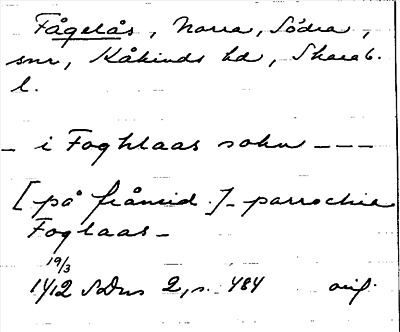 Fågelås, Norra, Södra,
snr, Kåkinds hd, Skarab.
l.
_ i Foghlaas sokn _ _ _
[på frånsid.]_ parrochia
Foglaas _
19/3
1412 SDns 2, s. 484 orig.